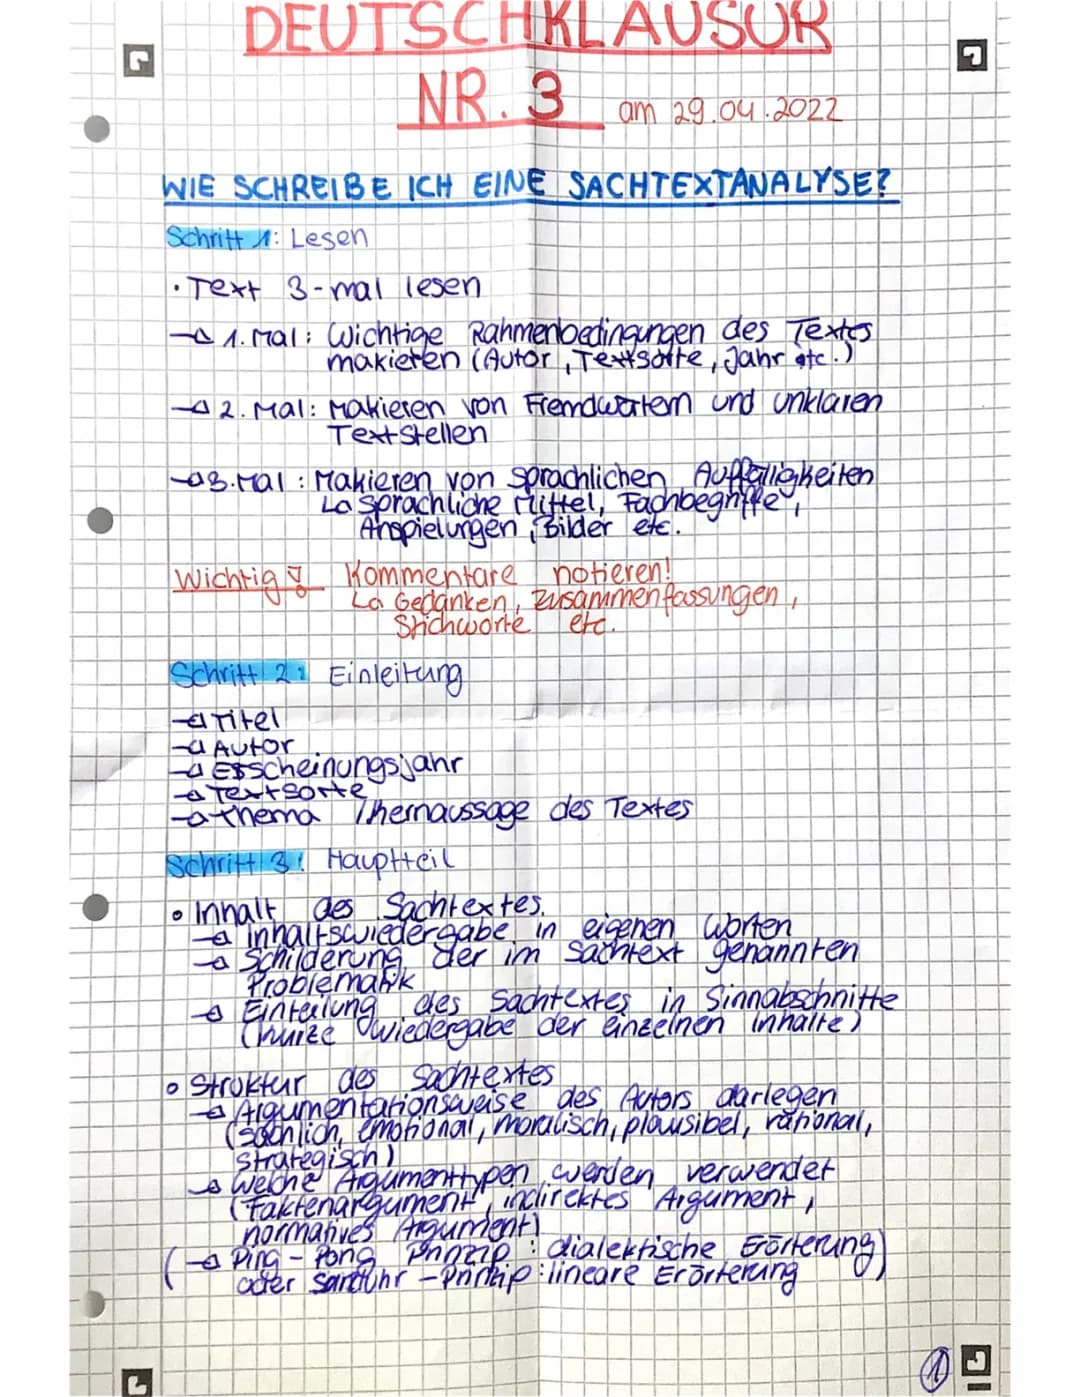 DEUTSCHKLAUSUR
NR. 3 am 29.04.2022
WIE SCHREIBE ICH EINE SACHTEXTANALYSE?
Schritt 1: Lesen
• Text 3-mal lesen
→ 1. Mal: Wichtige Rahmenbedingungen des Textes
makieren (Autor, Textsorte, Jahr etc.)
→ 2. Mal: Makieren von Fremdwörtern und unklaren
Textstellen
→ 3. Mal: Makieren von sprachlichen Auffälligkeiten
↳ sprachliche Mittel, Fachbegriffe,
Anspielungen, Bilder etc.
Wichtig! Kommentare notieren!
↳ Gedanken, Zusammenfassungen,
Stichworte etc.
Schritt 2: Einleitung
→ Titel
→ Autor
→ Erscheinungsjahr
→ Textsorte
→ Thema / Kernaussage des Textes
Schritt 3: Hauptteil
• Inhalt des Sachtextes
→ Inhaltswiedergabe in eigenen Worten
→ Schilderung der im Sachtext genannten
Problematik
→ Einteilung des Sachtextes in Sinnabschnitte
(kurze Wiedergabe der einzelnen Inhalte)
• Struktur des Sachtextes
→ Argumentationsweise des Autors darlegen
(sachlich, emotional, moralisch, plausibel, rational,
strategisch)
→ Welche Argumenttypen werden verwendet
(Faktenargument, indirektes Argument,
normatives Argument)
(→ Ping-Pong Prinzip: dialektische Erörterung)
oder Sanduhr-Prinzip: lineare Erörterung
1